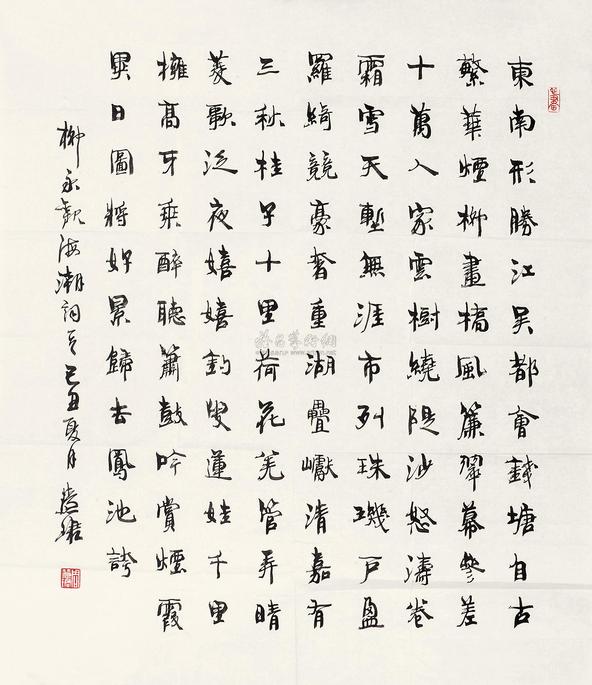 東南形勝江吳都會錢塘自古
繁華煙柳畫橋風簾翠幕參差
十萬人家雲樹繞隄沙怒濤卷
霜雪天塹無涯市列珠璣戶盈
羅綺競豪奢重湖疊巘清嘉有
三秋桂子十里荷花羌管弄晴
菱歌泛夜嬉嬉釣叟蓮娃千里
擁高牙乘醉聽簫鼓吟賞煙霞
異日圖將好景歸去鳳池誇
柳永觀海潮詞 己丑夏月